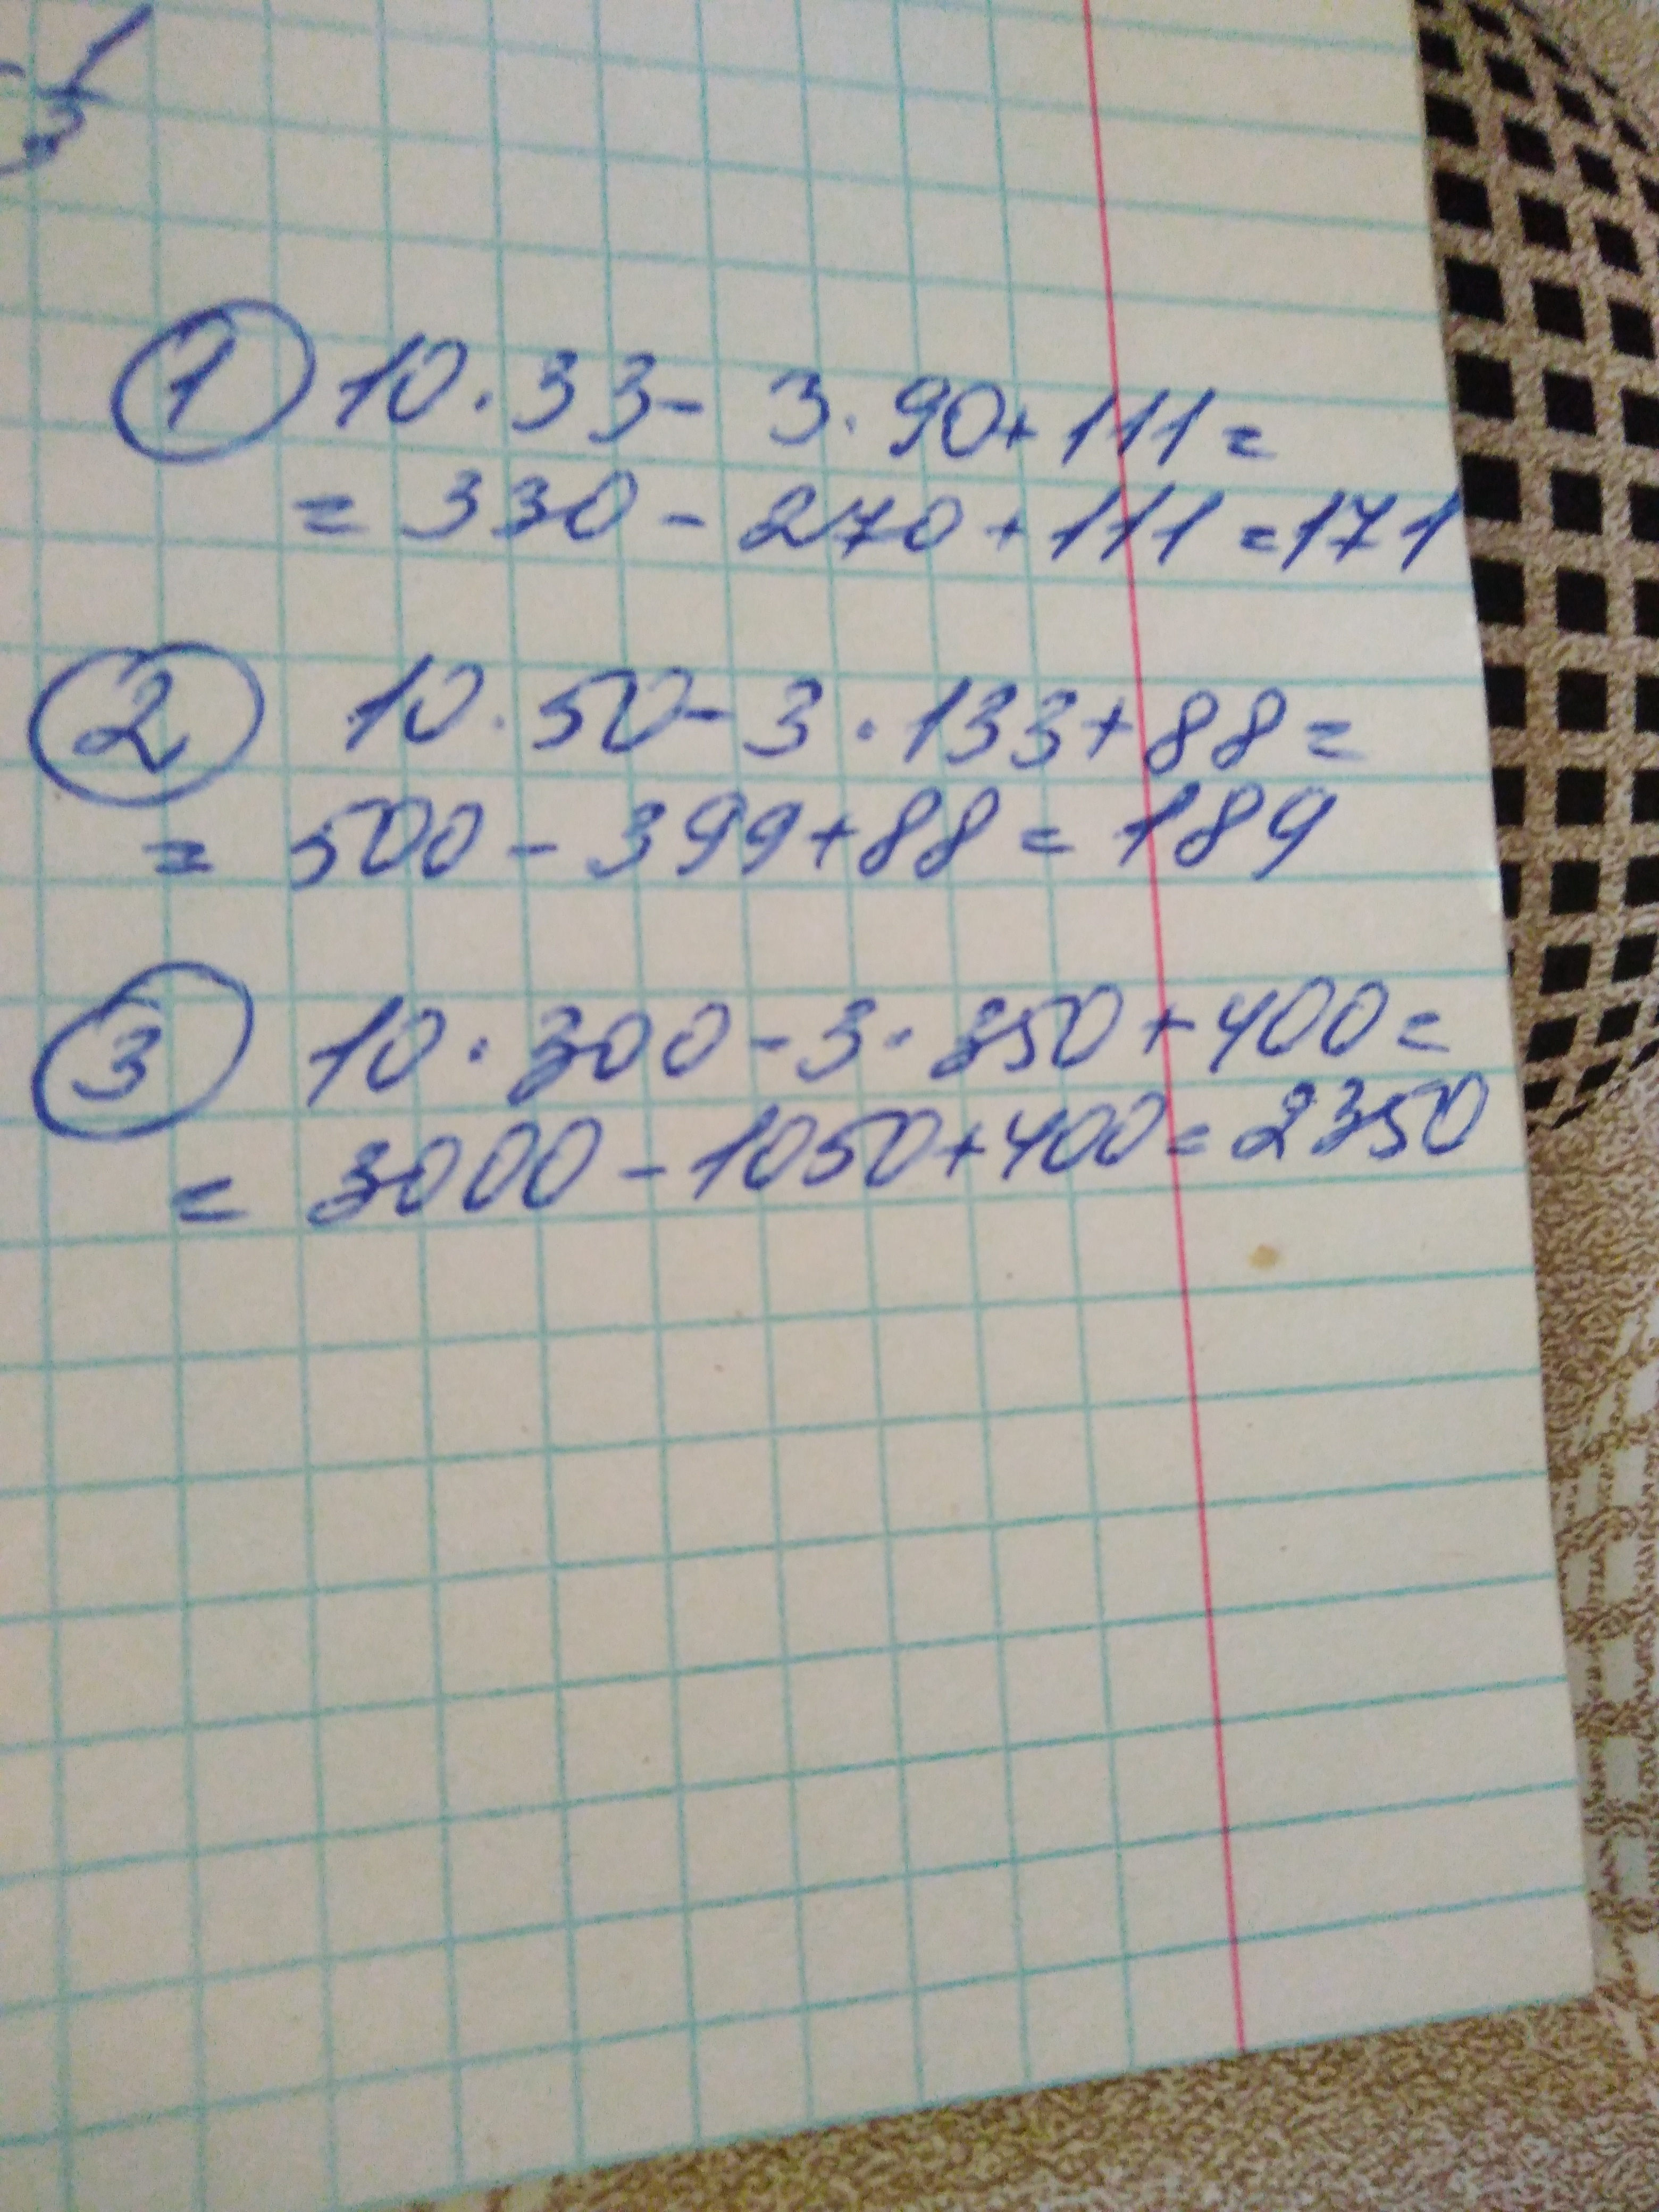 ① 10·33- 3·90+111=
= 330-270+111=171
② 10·50-3·133+88=
= 500-399+88=189
③ 10·300-3·350+400=
= 3000-1050+400=2350